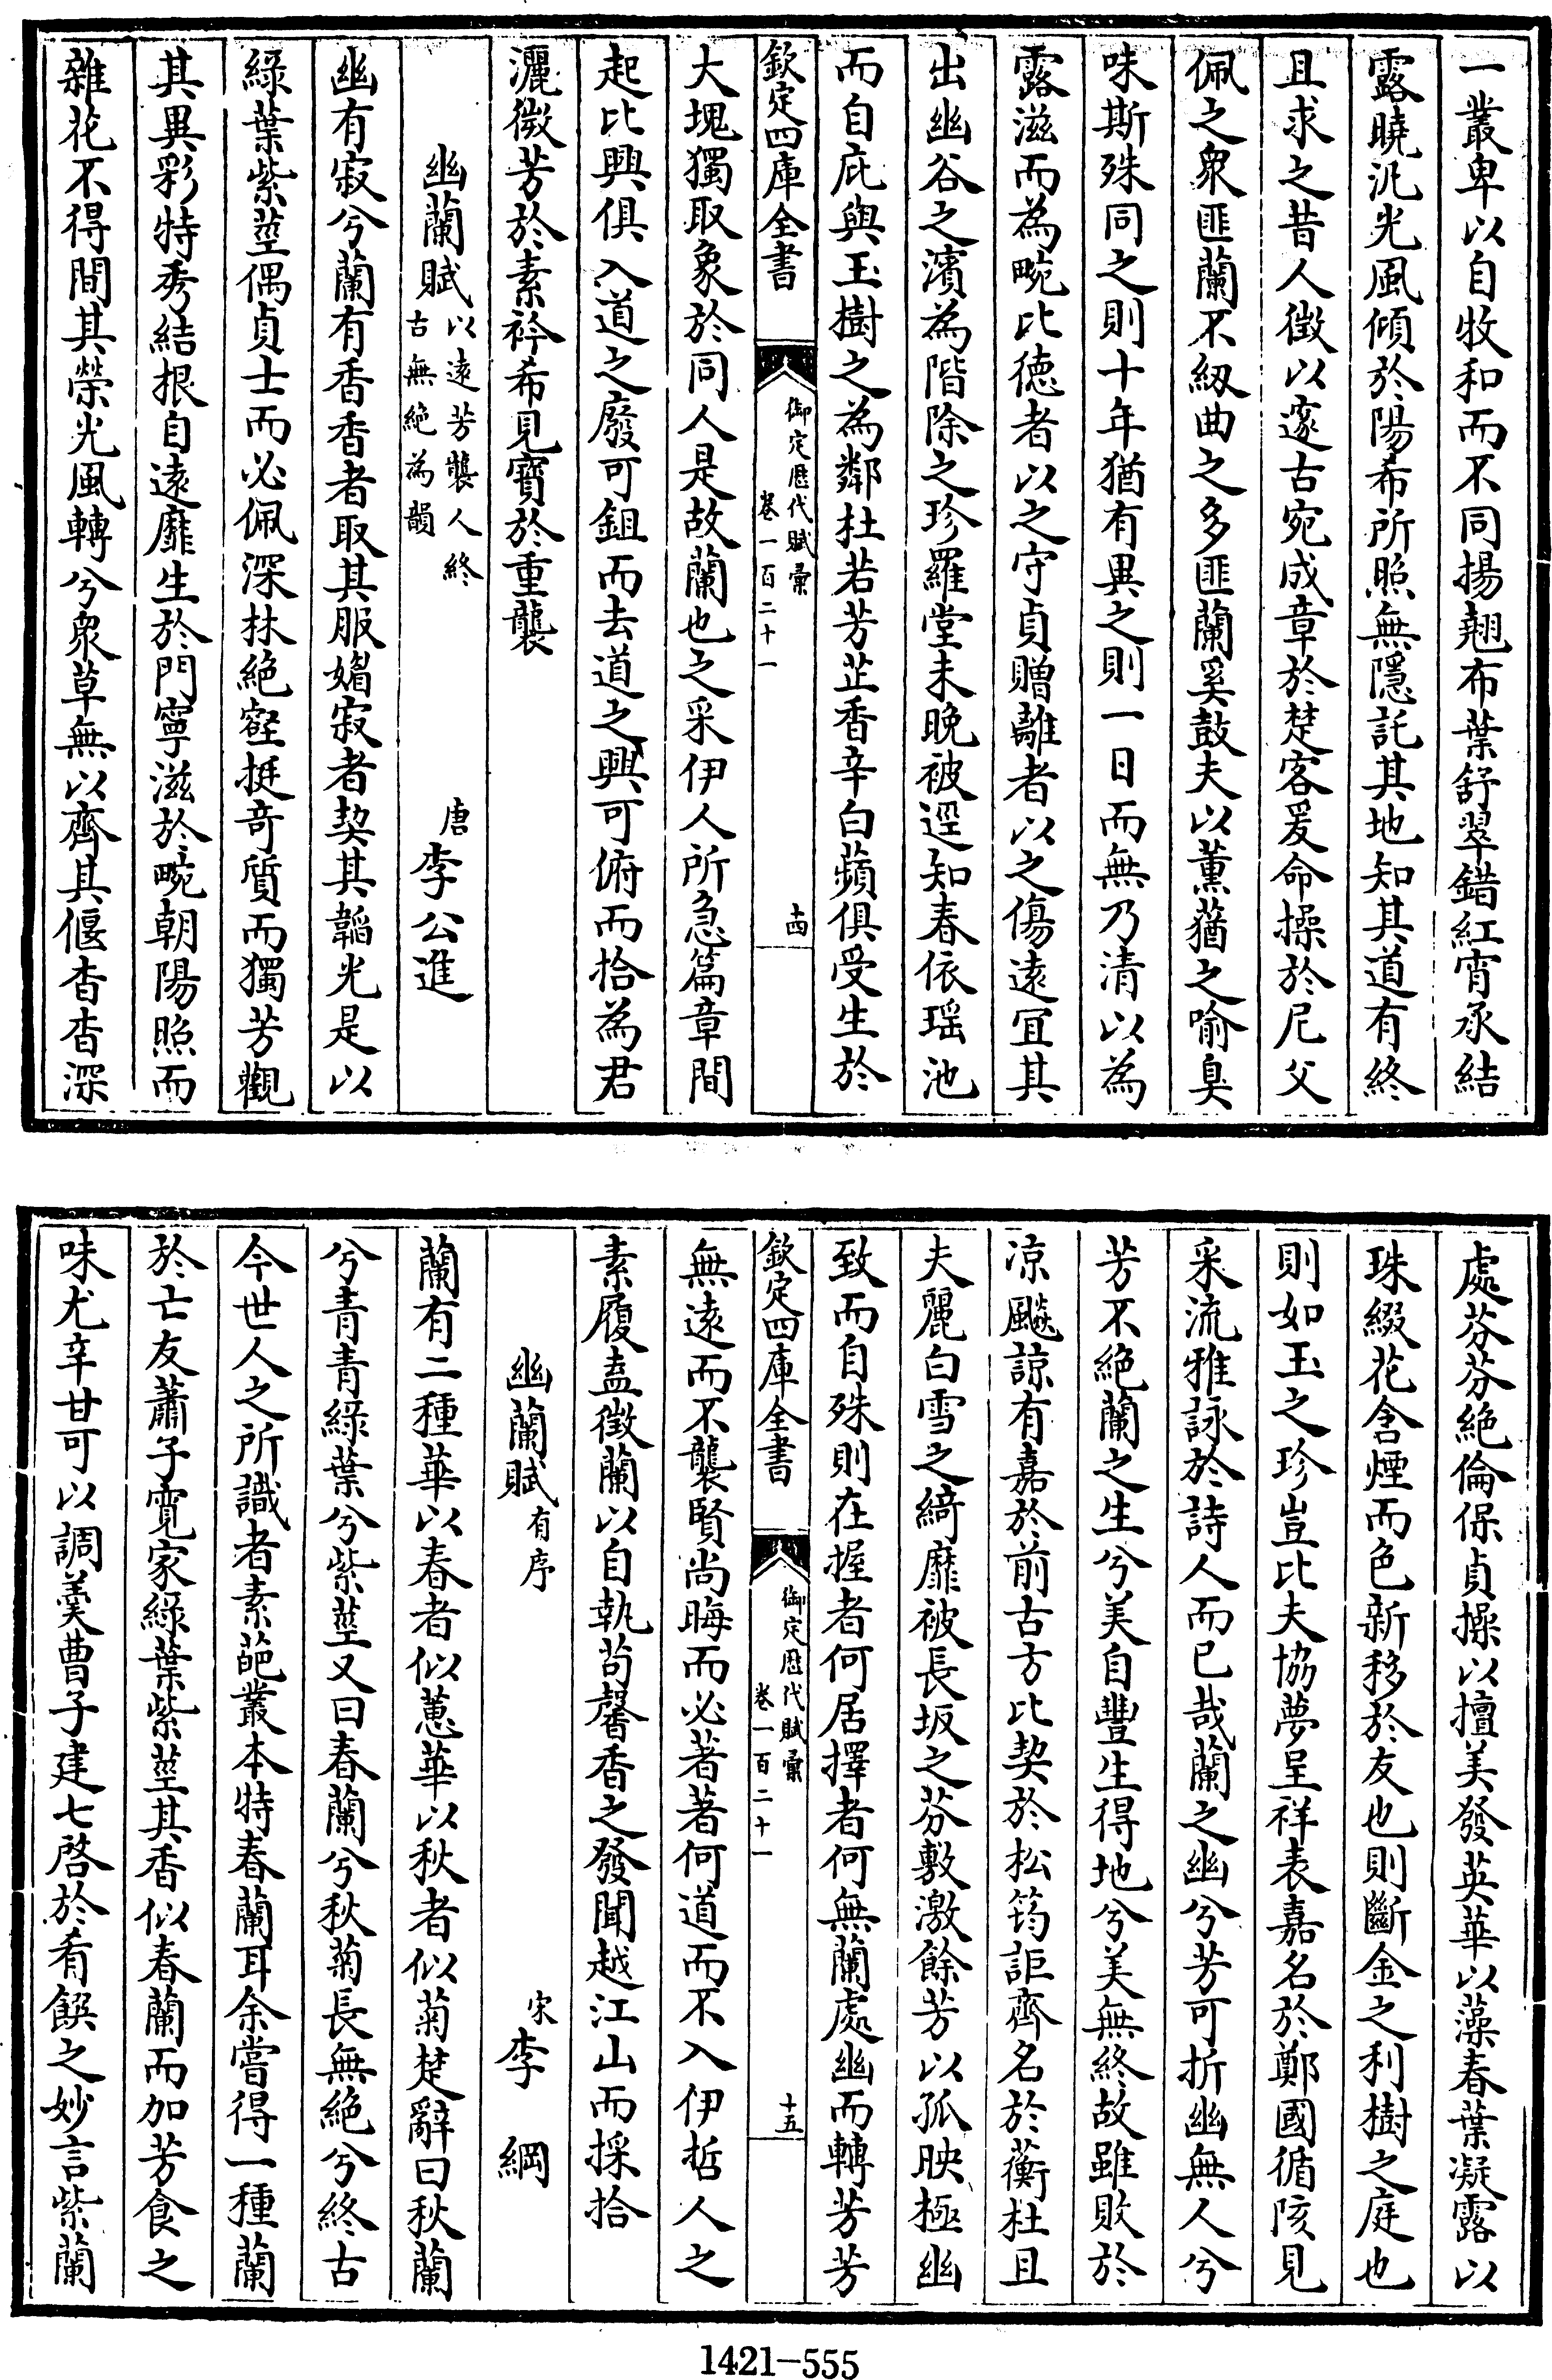 一叢卑以自牧和而不同揚翹布葉舒翠錯紅宵承結
露曉汎光風傾於陽希所照無隱託其地知其道有終
且求之昔人徵以邃古宛成章於楚客爰命操於尼父
佩之衆匪蘭不紉曲之多匪蘭奚鼓夫以薰蕕之喻臭
味斯殊同之則十年猶有異之則一日而無乃清以為
露滋而為畹比德者以之守貞贈離者以之傷遠宜其
出幽谷之濱為階除之珍羅堂未晚被逕知春依瑶池
而自庇與玉樹之為鄰杜若芳芷香辛白蘋俱受生於
欽定四庫全書
御定歴代賦彚
卷一百二十一
十四
大塊獨取象於同人是故蘭也之采伊人所急篇章間
起比興俱入道之廢可鉏而去道之興可俯而拾為君
灑微芳於素衿希見寳於重襲
幽蘭賦以遠芳襲人終
古無絶為韻
唐李公進
幽有寂兮蘭有香香者取其服媚寂者契其韜光是以
緑葉紫莖偶貞士而必佩深林絶壑挺竒質而獨芳觀
其異彩特秀結根自遠靡生於門寧滋於畹朝陽照而
雜花不得間其榮光風轉兮衆草無以齊其偃杳杳深
處芬芬絶倫保貞操以擅美發英華以藻春葉凝露以
珠綴花含煙而色新移於友也則斷金之利樹之庭也
則如玉之珍豈比夫協夢呈祥表嘉名於鄭國循陔見
采流雅詠於詩人而已哉蘭之幽兮芳可折幽無人兮
芳不絶蘭之生兮美自豐生得地兮美無終故雖敗於
涼飈諒有嘉於前古方比契於松筠詎齊名於蘅杜且
夫麗白雪之綺靡被長坂之芬敷激餘芳以孤映極幽
致而自殊則在握者何居擇者何無蘭處幽而轉芳芳
欽定四庫全書
御定歴代賦彚
卷一百二十一
十五
無遠而不襲賢尚晦而必著著何道而不入伊哲人之
素履盍徵蘭以自執苟馨香之發聞越江山而採拾
幽蘭賦有序
宋李綱
蘭有二種華以春者似蕙華以秋者似菊楚辭曰秋蘭
兮青青緑葉兮紫莖又曰春蘭兮秋菊長無絶兮終古
今世人之所識者素葩叢本特春蘭耳余嘗得一種蘭
於亡友蕭子寛家緑葉紫莖其香似春蘭而加芳食之
味尤辛甘可以調羹曹子建七啓於肴饌之妙言紫蘭
1421-555